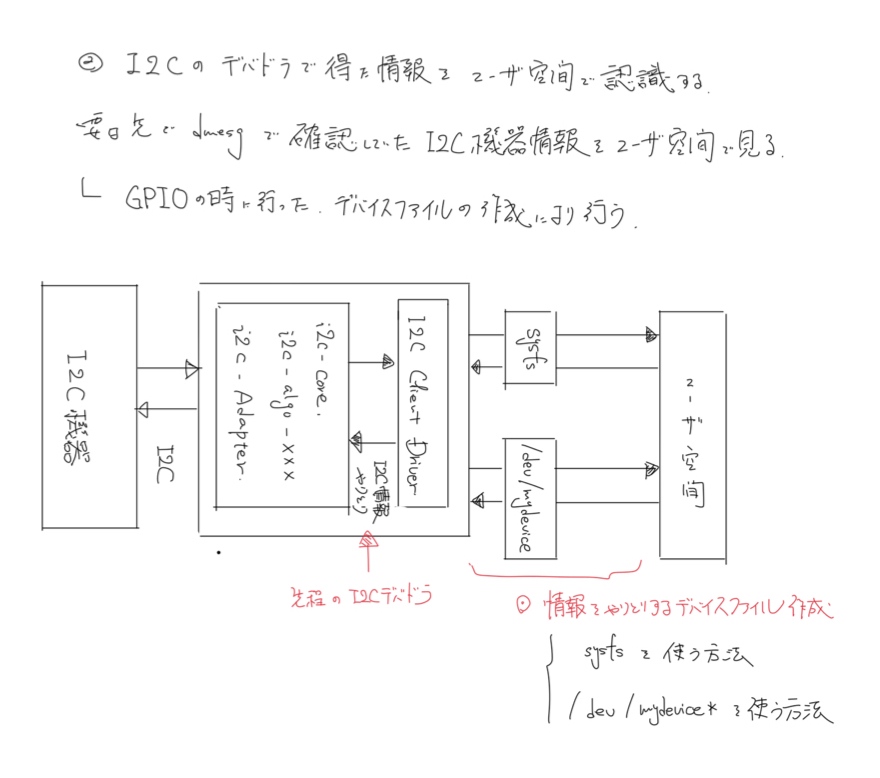 ② I2Cのデバドラで得た情報をユーザ空間で認識する.
要は先で dmesg で確認していた I2C機器情報をユーザ空間で見る.
└ GPIOの時に行った.デバイスファイルの作成により行う.
I2C機器
I2C
i2c-core.
i2c-algo-xxx
i2c-Adapter.
I2C Client Driver
I2C情報
やりとり
sysfs
/dev/mydevice
ユーザ空間
先程のI2Cデバドラ
⊙ 情報をやりとりするデバイスファイル作成
sysfs を使う方法
/dev/mydevice* を使う方法